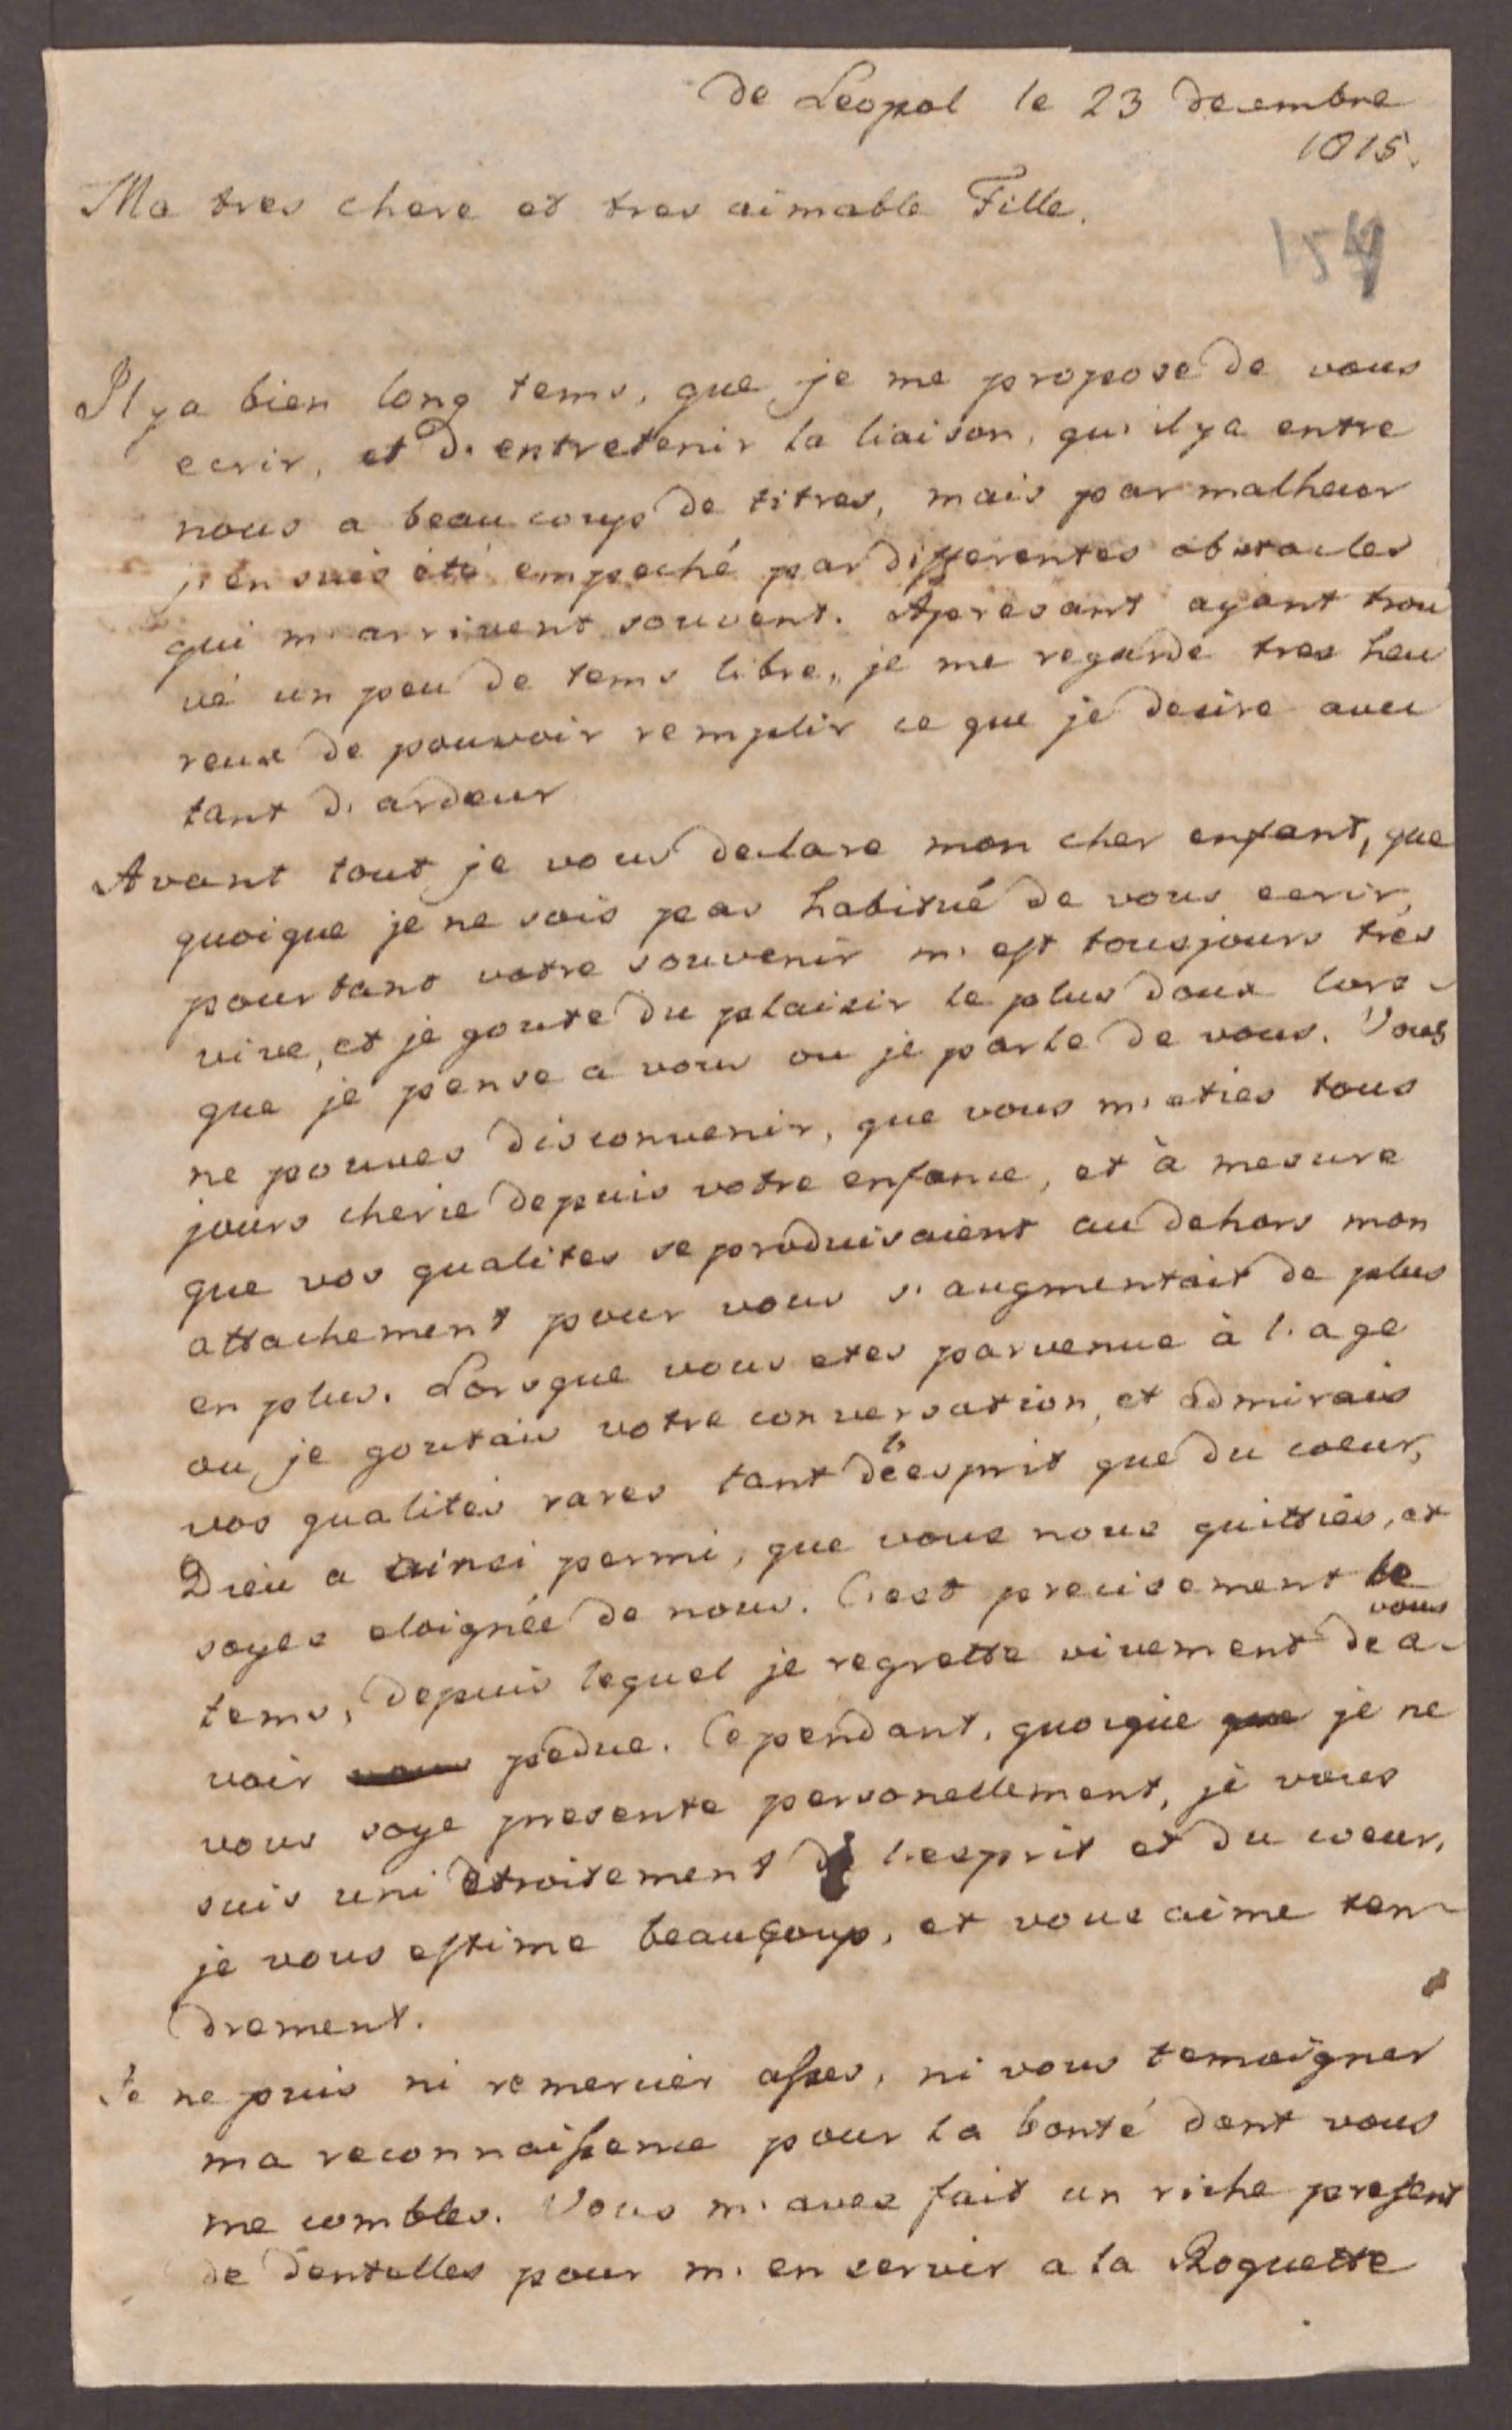 de Leopol le 23 decembre
1815.
Ma tres chere et tres aimable Fille.
154
Il ya bien long tems, que je me propose de vous
ecrir, et d'entretenir la liaison, qu'il ya entre
nous a beaucoups de titres, mais par malheur
j'en suis été empeché par differentes obstacles
qui m'arrivent souvent. Apresant ayant trou
vé un peu de tems libre, je me regarde tres heu
reux de pouvoir remplir ce que je desire avec
tant d'ardeur
Avant tout je vous declare mon cher enfant, que
quoique je ne sois pas habitué de vous ecrir,
pourtant votre souvenir m'est tousjours trés
vive, et je goute du plaisir le plus doux lors-
que je pense a vous ou je parle de vous. Vous
ne pouves disconvenir, que vous m'eties tous
jours cherie depuis votre enfance, et à mesure
que vos qualites se produisaient au dehors mon
attachement pour vous s'augmentait de plus
en plus. Lorsque vous etes parvenue à l'age
ou je goutais votre conversation, et admirais
vos qualités rares tant de l'esprit que du coeur,
Dieu a ainsi permi, que vous nous quittiés, et
soyes eloignée de nous. C'est precisement le
tems, depuis lequel je regrette vivement de vous a-
voir vous pedue. Cependant, quoique que je ne
vous soye presente personellement, je vous
suis uni etroitement de l'esprit et du coeur,
je vous estime beaucoup, et vous aime ten-
drement.
Je ne puis ni remercier asses, ni vous temoigner
ma reconnaissence pour la bonté dont vous
me combles. Vous m'aves fait un riche present
de dentelles pour m'en servir a la Roquette